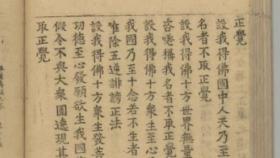 正覺
設我得佛國中人天乃至
名者不取正覺
設我得佛十方世界無量
咨嗟稱我名者不取正覺
設我得佛十方衆生至心
我國乃至十念若不生者
唯除五逆誹謗正法
設我得佛十方衆生發菩
功德至心發願欲生我國
假令不與大衆圍遶現其
取正覺